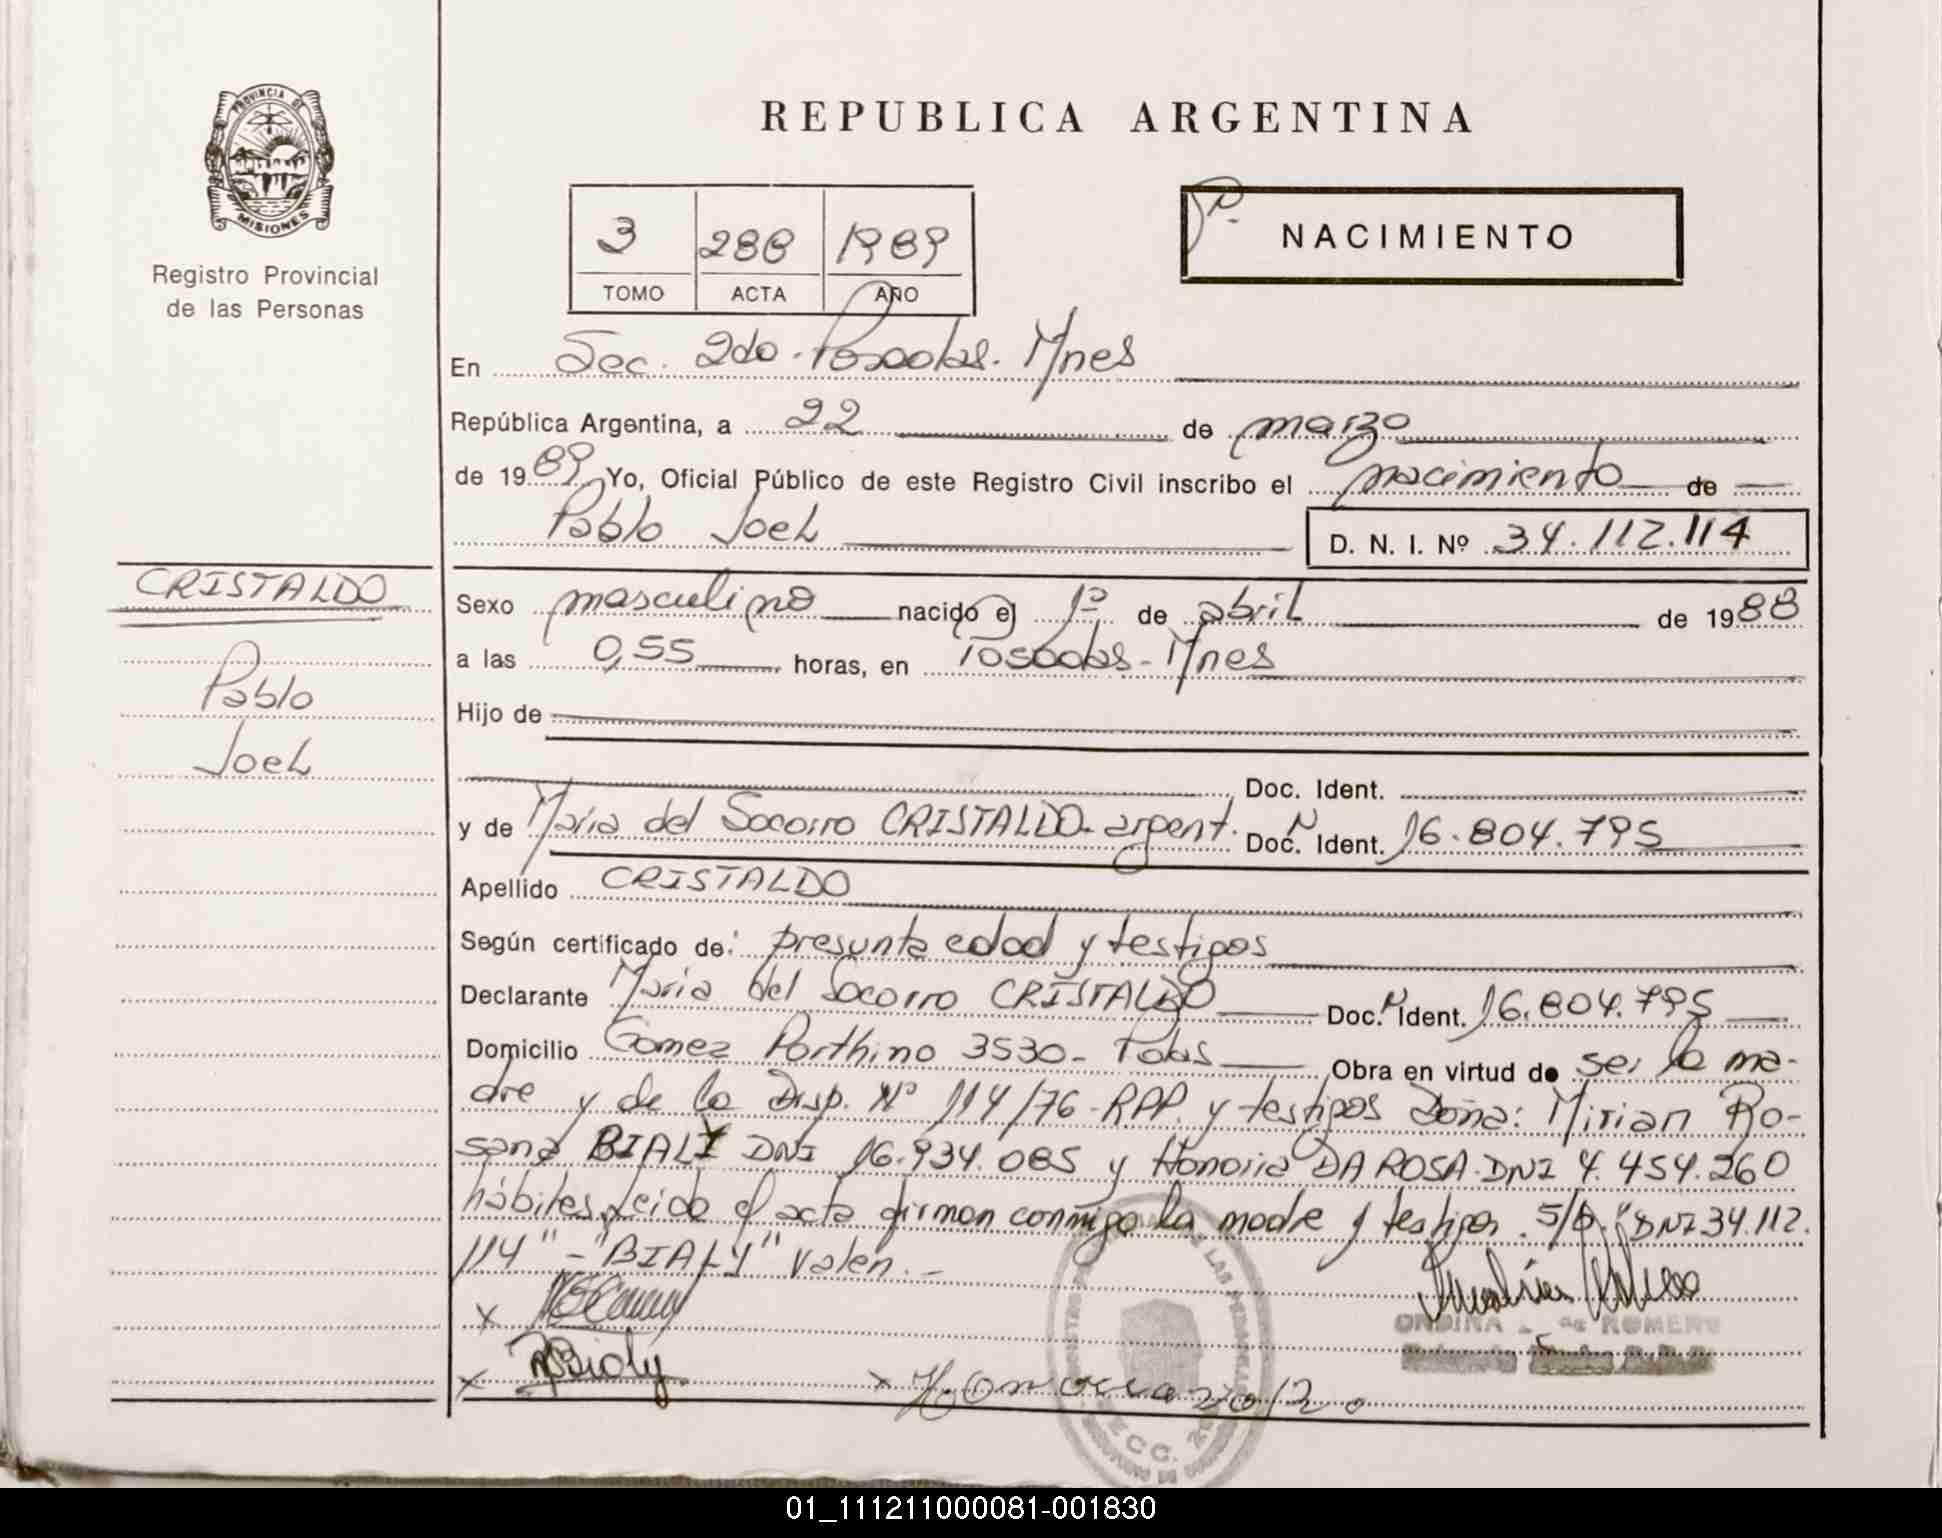 PROVINCIA DE
MISIONES
Registro Provincial
de las Personas
REPUBLICA ARGENTINA
3 288 1989
TOMO ACTA AÑO
NACIMIENTO
En Sec. 2do. Posadas. Mnes
República Argentina, a 22 de marzo
de 1989 Yo, Oficial Público de este Registro Civil inscribo el nacimiento de
Pablo Joel D. N. I. Nº 34.112.114
CRISTALDO
Pablo
Joel
Sexo masculino nacido el 1º de abril de 1988
a las 0,55 horas, en Posadas - Mnes
Hijo de
Doc. Ident.
y de María del Socorro CRISTALDO - argent. Doc. Ident. 16.804.795
Apellido CRISTALDO
Según certificado de: presunta edad y testigos
Declarante María del Socorro CRISTALDO Doc. Ident. 16.804.795
Domicilio Gomez Porthino 3530 - Pdas Obra en virtud de ser la ma-
dre y de la Disp. Nº 114/76 - RPP. y testigos Doña: Mirian Ro-
sana BIALY DNI 16.934.085 y Honoria DA ROSA - DNI 4.454.260
hábiles, leida el acta firman conmigo la madre y testigos. S/b. "DNI 34.112.
114" - "BIALY" Valen. -
x
x MBialy x
ORDINA de ROMERO
SECC. 2
01_111211000081-001830